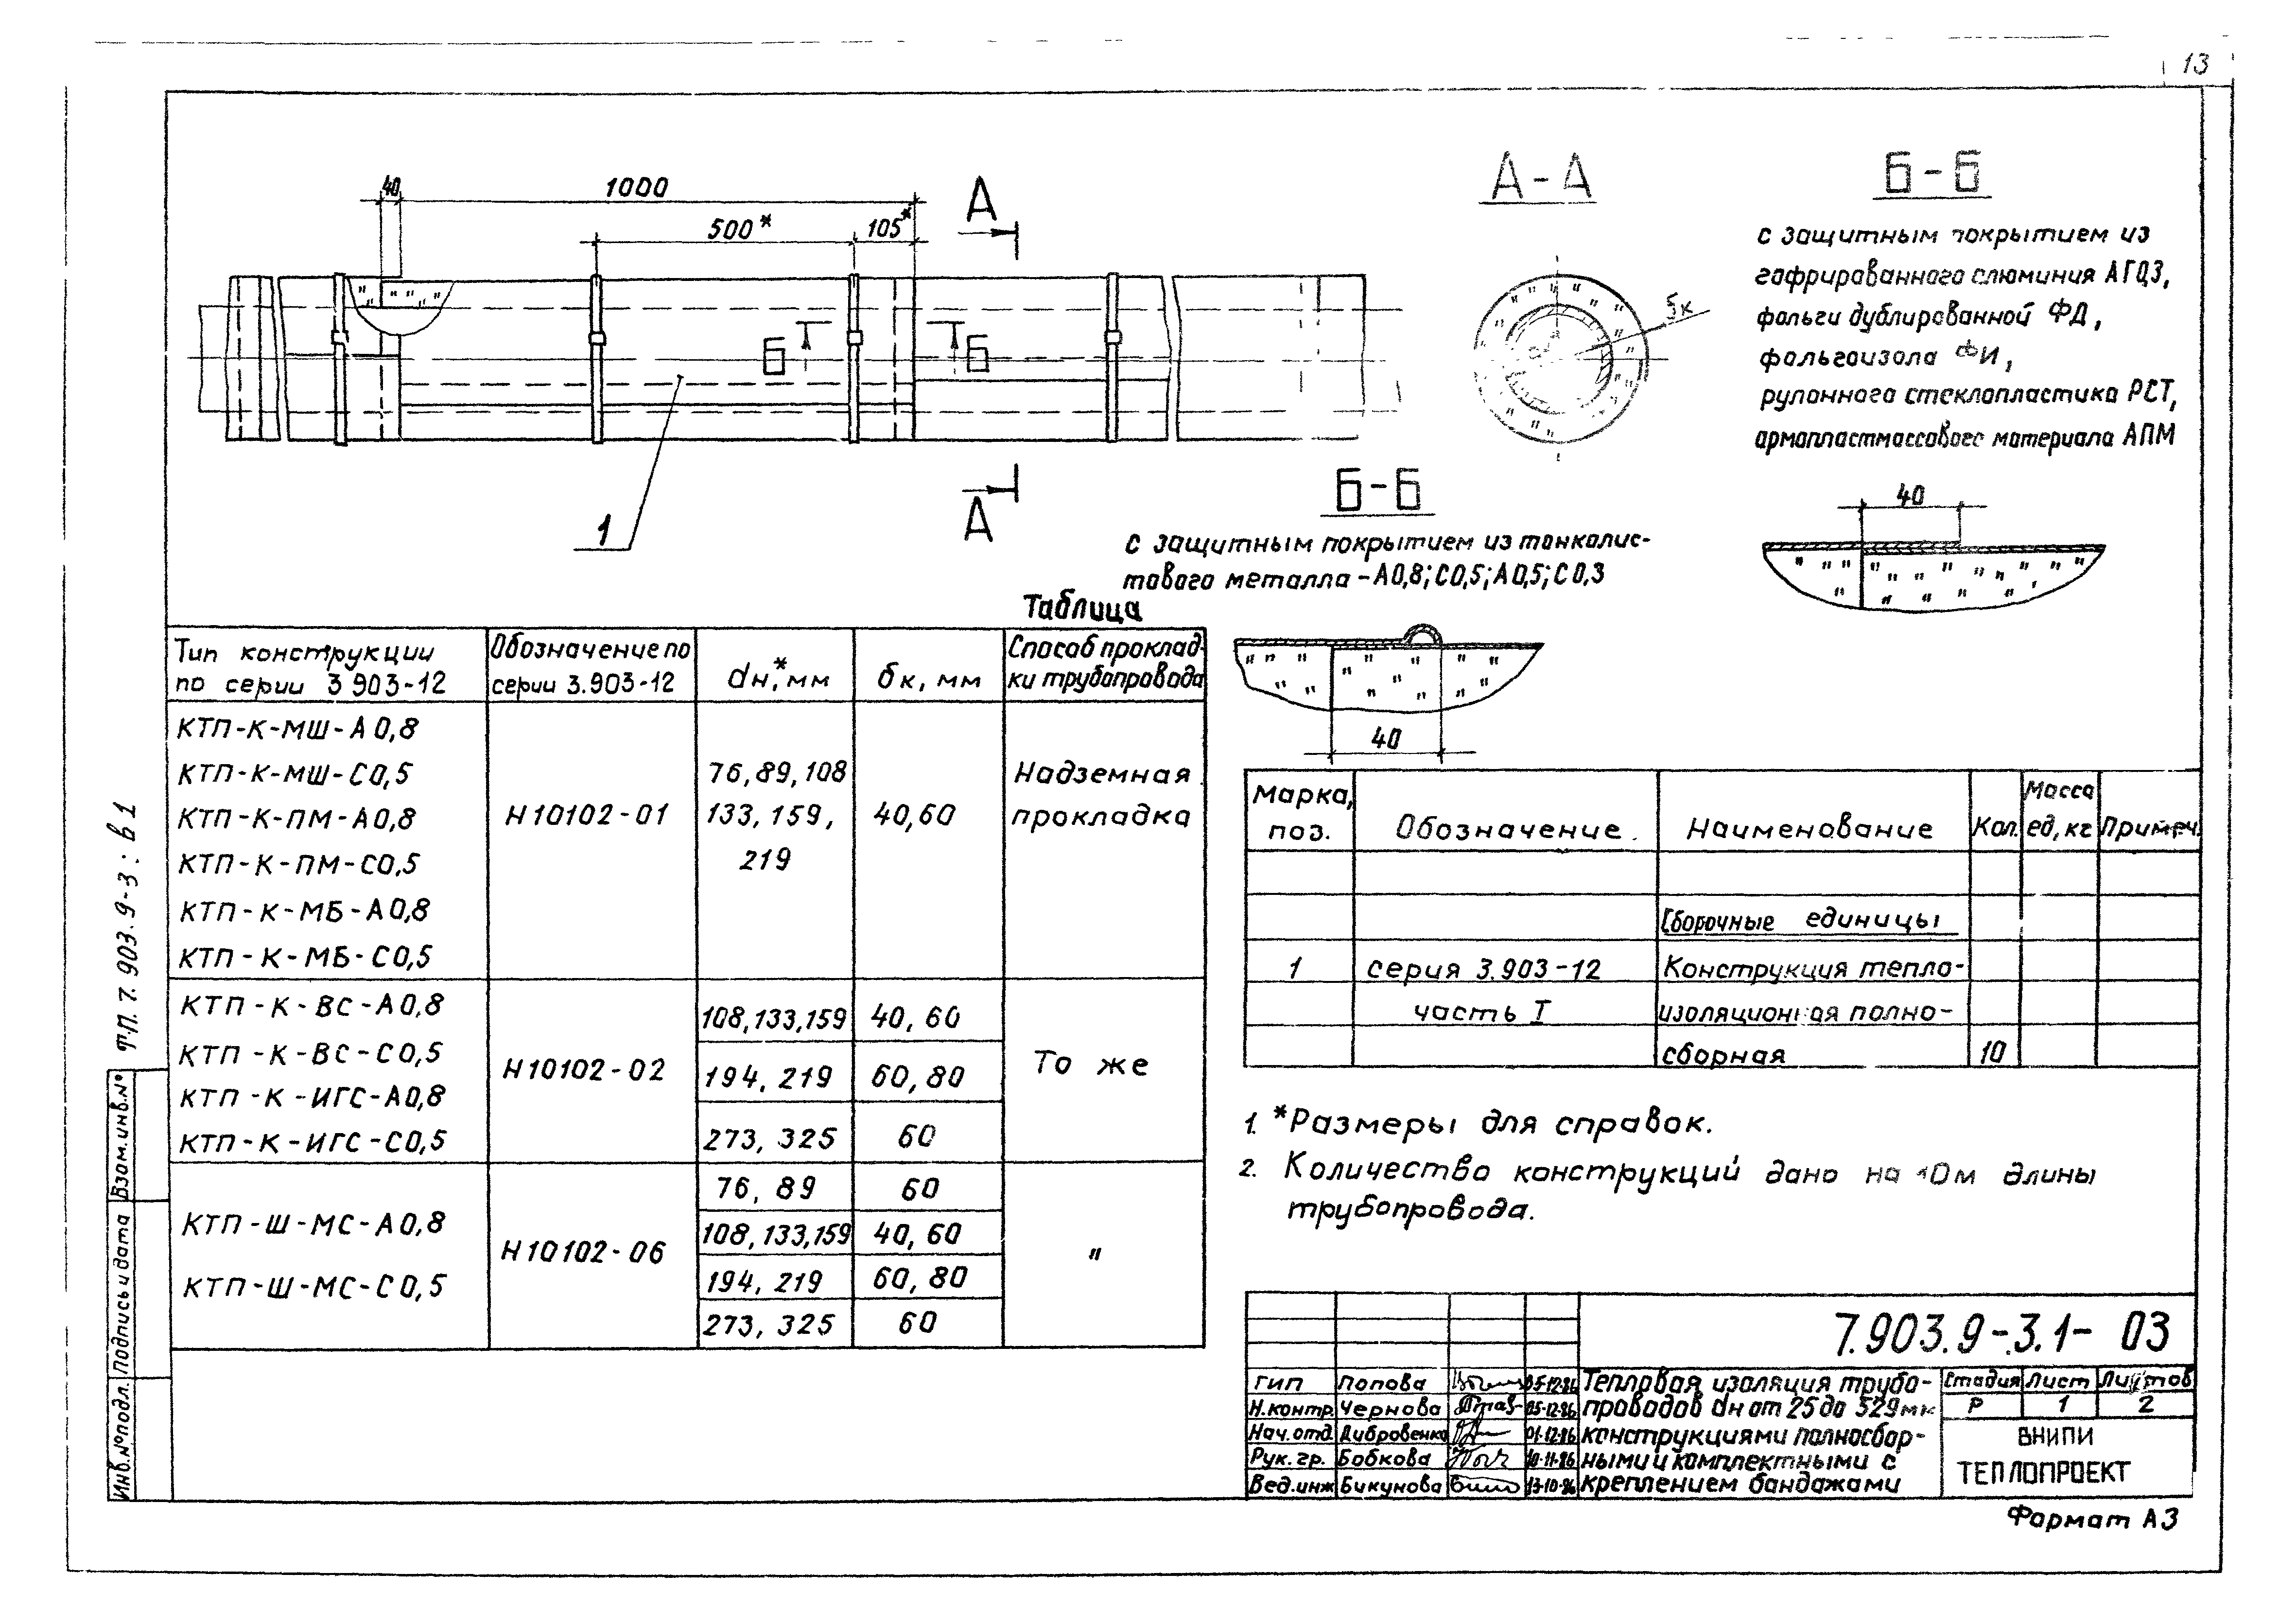 13
40
1000
500*
105*
А
А
Б
Б
1
А-А
δк
Б-Б
с защитным покрытием из
гофрированного алюминия АГ0,3,
фольги дублированной ФД,
фольгоизола ФИ,
рулонного стеклопластика РСТ,
армопластмассового материала АПМ
40
Б-Б
с защитным покрытием из тонколис-
тового металла - А0,8; С0,5; А0,5; С0,3
40
Таблица
Тип конструкции по серии 3.903-12
Обозначение по серии 3.903-12
dн*, мм
δк, мм
Способ проклад-ки трубопровода
КТП-К-МШ-А0,8
КТП-К-МШ-С0,5
КТП-К-ПМ-А0,8
КТП-К-ПМ-С0,5
КТП-К-МБ-А0,8
КТП-К-МБ-С0,5
Н10102-01
76, 89, 108
133, 159,
219
40, 60
Надземная
прокладка
КТП-К-ВС-А0,8
КТП-К-ВС-С0,5
КТП-К-ИГС-А0,8
КТП-К-ИГС-С0,5
Н10102-02
108, 133, 159 40, 60
194, 219 60, 80
273, 325 60
То же
КТП-Ш-МС-А0,8
КТП-Ш-МС-С0,5
Н10102-06
76, 89 60
108, 133, 159 40, 60
194, 219 60, 80
273, 325 60
"
Марка, поз.
Обозначение
Наименование
Кол.
Масса ед, кг
Примеч.
Сборочные единицы
1 серия 3.903-12 Конструкция тепло-
часть I изоляционная полно-
сборная 10
1. *Размеры для справок.
2. Количество конструкций дано на 10м длины
трубопровода.
7.903.9-3.1-03
ГИП Попова 05-12-86
Н.контр. Чернова 05-12-86
Нач.отд. Дибровенко 01-12-86
Рук.гр. Бобкова 10-11-86
Вед.инж Бикунова 13-10-86
Тепловая изоляция трубо-
проводов dн от 25 до 529мм
конструкциями полносбор-
ными и комплектными с
креплением бандажами
Стадия Лист Листов
Р 1 2
ВНИПИ
ТЕПЛОПРОЕКТ
Формат А3
т.п. 7.903.9-3: в1
Взам.инв.№
Подпись и дата
Инв.№ подл.